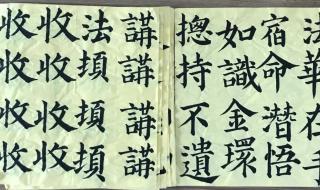 法華在手
宿命潛悟
如識金環
摠持不遺
講講講講
法頓頓頓
收收收收
收收收收